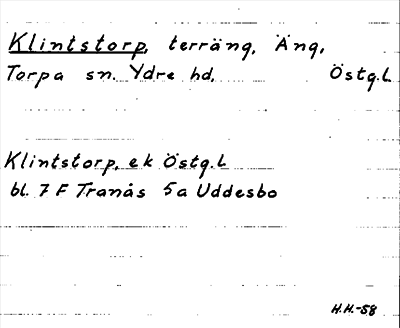 Klintstorp, terräng, Äng,
Torpa sn. Ydre hd. Östg.L
Klintstorp, ek Östg.L
bl. 7 F Tranås 5a Uddesbo
H.H.-58